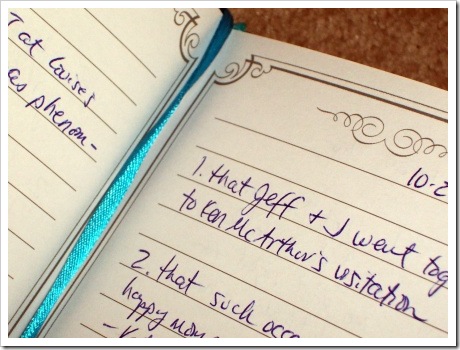 at Louises
as phenom-
10-2
1. that Jeff + I went tog
to Ken McArthur's visitation
2. that such occa
happy mom